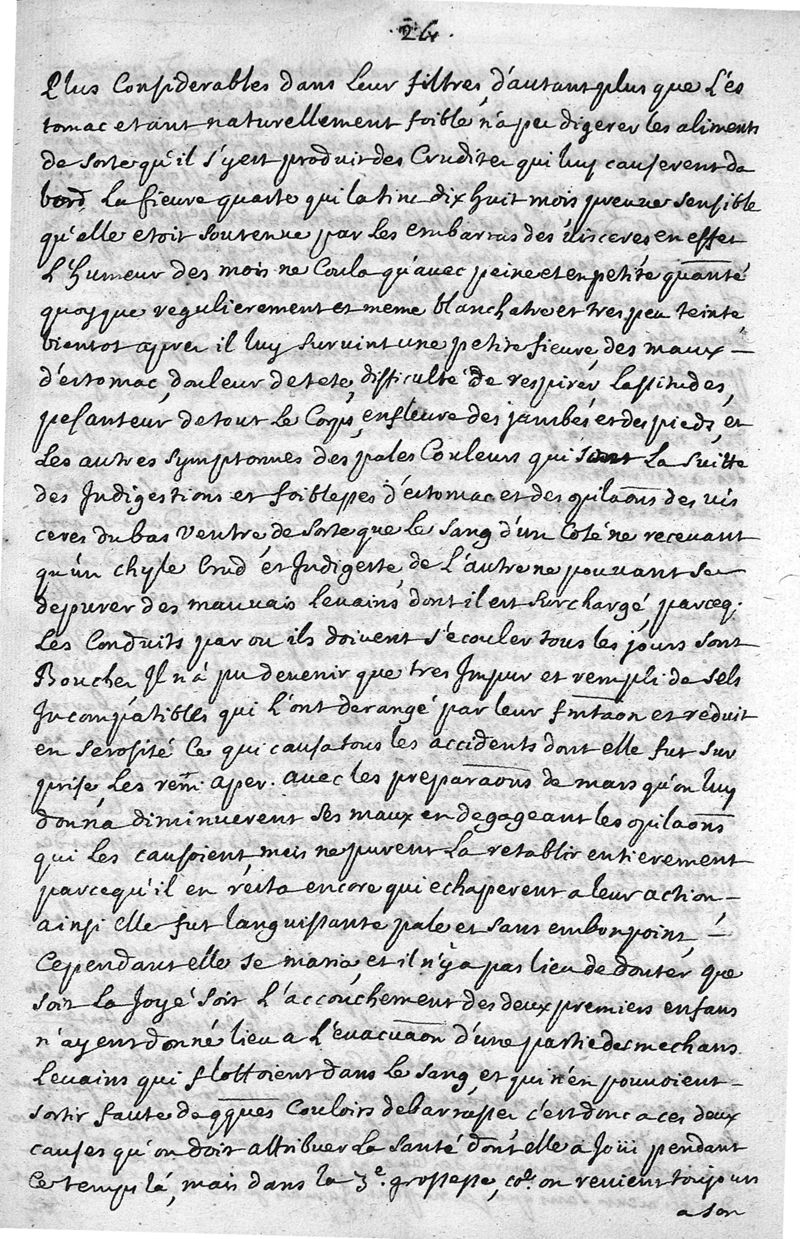 24.
Plus Considerables dans leur filtres, d'autant plus que L'es
tomac etant naturellement foible, n'a pu digerer les aliments
de sorte qu'il s'y est produit des Crudités qui luy causerent da
bord, La fievre quarte qui la tint dix huit mois preuve sensible
qu'elle etoit soutenue par les embarras des visceres en effet
L'humeur des mois ne Coula qu'avec peine et en petite quantté
quoyque regulierement et meme blanchatre et tres peu teinte
bientot apres il luy survint une petite fievre, des maux –
d'estomac, douleur de tete, difficulté de respirer, Lassitudes,
pesanteur de tout le Corps, enfleure des jambes et des pieds, et
Les autres symptomes des pales Couleurs qui sont La suitte
des Indigestions et foiblesses d'estomac et des opilaons des vis
ceres du bas Ventre, de sorte que le sang d'un Coté ne recevant
qu'un chyle Crud et Indigeste, de L'autre ne pouvant se
depurer des mauvais levains dont il est surchargé, parceq.
Les Conduits par ou ils doivent s'ecouler tous les jours sont
Bouchez Il n'a pu devenir que tres Impur et rempli de sels
Incompatibles qui L'ont derangé par leur fmtaon et reduit
en serosité Ce qui causa tous les accidents dont elle fut sur
prise Les rem. aper. avec les preparaons de mars qu'on luy
donna diminuerent ses maux en degageant les opilaons
qui Les causoient, mais ne purent La retablir entierement
parcequ'il en resta encore qui echaperent a leur action –
ainsi elle fut languissante pale et sans embonpoint, –
Cependant elle se maria, et il n'y a pas lieu de douter que
soit La Joye soit L'accouchement des deux premiers enfans
n'ayent donné lieu a L'evacuaon d'une partie des mechans
Levains qui flottoient dans Le sang, et qui n'en pouvoient –
sortir faute de qques Couloirs debarrassez c'est donc a ces deux
causes qu'on doit attribuer La santé dont elle a Joüi pendant
Ce temps là, mais dans la 3e. grossesse, co. on revient toujours
a son